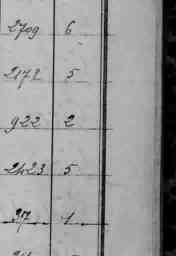 2709 6
2172 5
922 2
2423 5
317 1